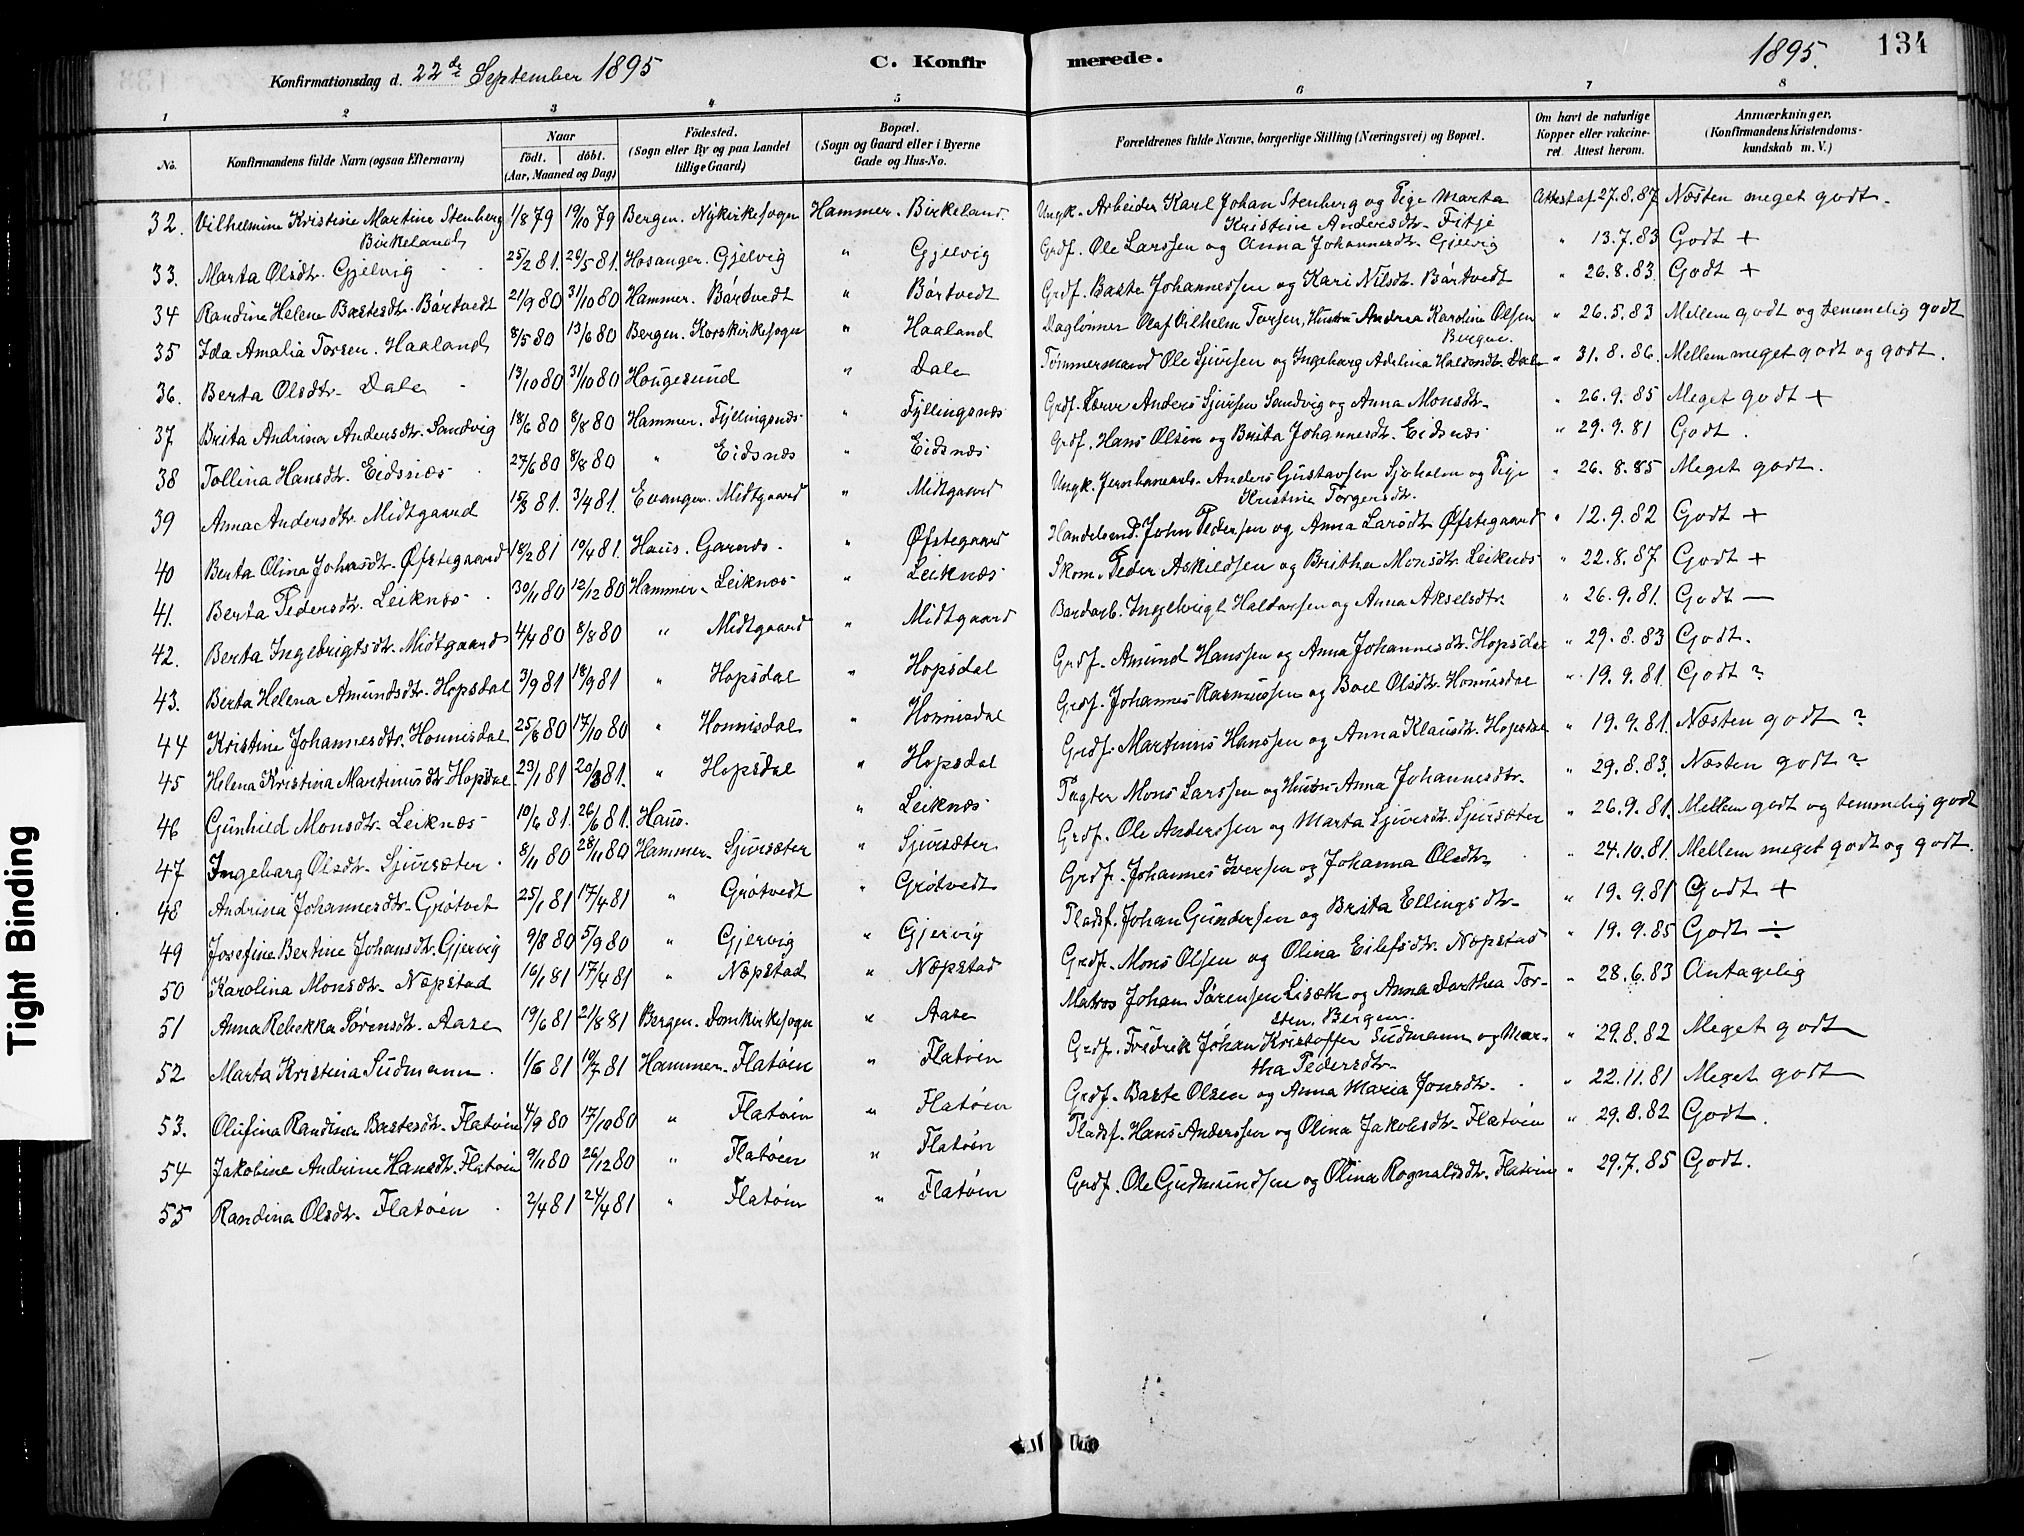 Konfirmationsdag d. 22de September 1895
C. Konfirmerede.
1895.
134
1 2 3 4 5 6 7 8
No.
Konfirmandens fulde Navn (ogsaa Efternavn)
Naar
födt. döbt.
(Aar, Maaned og Dag)
Födested.
(Sogn eller By og paa Landet
tillige Gaard)
Bopæl.
(Sogn og Gaard eller i Byerne
Gade og Hus-No.
Forældrenes fulde Navne, borgerlige Stilling (Næringsvei) og Bopæl.
Om havt de naturlige
Kopper eller vakcine-
ret. Attest herom.
Anmærkninger.
(Konfirmandens Kristendoms-
kundskab m. V.)
32. Vilhelmine Kristine Martine Stenberg 1/8 79 19/10 79 Bergen. Nykirkesogn Hammer. Birkeland. Ungk. Arbeider Karl Johan Stenberg og Pige Marta Attest af 27.8.87 Næsten meget godt.
Birkeland Kristine Andersdtr. Fitje
33. Marta Olsdtr. Gjelvig 25/2 81. 29/5 81. Hosanger. Gjelvig " Gjelvig Grdf. Ole Larssen og Anna Johannesdtr. Gjelvig " 13.7.83 Godt +
34 Randine Helene Bastesdtr. Bårtvedt 21/9 80 31/10 80 Hammer. Bårtvedt " Bårtvedt Grdf. Baste Johannessen og Kari Nilsdt. Bårtvedt " 26.8.83. Godt +
35 Ida Amalia Torsen. Haaland 8/5 80 13/6 80 Bergen. Korskirkesogn " Haaland Daglønner Olaf Vilhelm Torsen, Hustru Andrea Karoline Olsen " 26.5.83 Mellem godt og temmelig godt
Bergen.
36. Berta Olsdtr. Dale 13/10 80 31/10 80 Hougesund " Dale Tømmermand Ole Sjursen og Ingeborg Adelina Haldorsdtr. Dale " 31.8.86. Mellem meget godt og godt.
37 Brita Andrina Andersdtr. Sandvig 18/6 80 8/8 80 Hammer. Fyllingsnæs " Fyllingsnæs Grdf. Lærer Anders Sjursen Sandvig og Anna Monsdtr. " 26.9.85 Meget godt +
38 Tollina Hansdtr. Eidsnæs 27/6 80 8/8 80 " Eidsnæs " Eidsnæs Grdf. Hans Olsen og Brita Johannesdtr. Eidsnæs " 29.9.81 Godt.
39 Anna Andersdtr. Midtgaard 15/3 81. 3/4 81. Evanger. Midtgaard " Midtgaard Ungk. Jernbanearb. Anders Gustavsen Sjøholm og Pige " 26.8.85 Meget godt.
Kristine Torgersdtr.
40 Berta Olina Johnsdtr. Øfstegaard 18/2 81 10/4 81. Haus. Garnes. " Øfstegaard Handelsmd. John Pedersen og Anna Larsdtr. Øfstegaard " 12.9.82 Godt +
41. Berta Pedersdtr. Leiknæs 30/11 80 12/12 80 Hammer. Leiknæs " Leiknæs Skom. Peder Askildsen og Britha Monsdtr. Leiknæs " 22.8.87 Godt +
42. Berta Ingebrigtsdtr. Midtgaard 4/4 80 8/8 80 " Midtgaard " Midtgaard Ingebrigt Haldorsen og Anna Akselsdtr. " 26.9.81. Godt —
43. Berta Helena Amundsdtr. Hopsdal 3/9 81 18/9 81 " Hopsdal " Hopsdal Grdf. Amund Hanssen og Anna Johannesdtr. Hopsdal " 29.8.83 Godt.
44 Kristine Johannesdtr. Honnisdal 25/8 80 17/10 80 " Honnisdal " Honnisdal Grdf. Johannes Rasmussen og Boel Olsdtr. Honnisdal " 19.9.81. Godt ?
45 Helena Kristina Martinusdtr. Hopsdal 23/1 81 20/3 81. " Hopsdal " Hopsdal Grdf. Martinus Hanssen og Anna Klausdtr. Hopsdal " 19.9.81. Næsten godt ?
46 Gunhild Monsdtr. Leiknæs 10/6 81. 26/6 81. Haus. " Leiknæs Mons Larssen og Hustru Anna Johannesdtr. " 29.8.83. Næsten godt ?
47 Ingeborg Olsdtr. Sjursæter 8/11 80 28/11 80 Hammer. Sjursæter " Sjursæter Grdf. Ole Anderssen og Marta Sjursdtr. Sjursæter " 26.9.81. Mellem godt og temmelig godt
48 Andrina Johannesdtr. Grøtvet 25/1 81 17/4 81 " Grøtvedt " Grøtvedt Grdf. Johannes Iversen og Johanna Olsdtr. " 24.10.81. Mellem meget godt og godt.
49 Josefine Bertine Johansdtr. Gjervig 9/8 80 5/9 80 " Gjervig " Gjervig Pladsf. Johan Gundersen og Brita Ellingsdtr. " 19.9.81 Godt +
50 Karolina Monsdtr. Næpstad 16/1 81 17/4 81 " Næpstad " Næpstad Grdf. Mons Olsen og Olina Eilefsdtr. Næpstad " 19.9.85 Godt ÷
51 Anna Rebekka Sørensdtr. Aase 19/6 81 21/8 81 Bergen. Domkirkesogn " Aase Matros Johan Sørensen Lisæth og Anna Dorthea Tor- " 28.6.83 Antagelig
sten. Bergen.
52 Marta Kristina Sudmann. 1/6 81 10/7 81 Hammer. Flatøen " Flatøen Grdf. Fredrik Johan Kristoffer Sudmann og Mar- " 29.8.82 Meget godt
tha Pedersdtr.
53. Olufina Randina Bastesdtr. Flatøen 4/9 80 17/10 80 " Flatøen " Flatøen Grdf. Baste Olsen og Anna Maria Jonsdtr. " 22.11.81 Meget godt
54 Jakobine Andrine Hansdtr. Flatøen 9/11 80 26/12 80 " Flatøen " Flatøen Pladsf. Hans Anderssen og Olina Jakobsdtr. Flatøen " 29.8.82 Godt.
55 Randina Olsdtr. Flatøen 2/4 81 24/4 81 " Flatøen " Flatøen Grdf. Ole Gudmundsen og Olina Rognaldsdtr. Flatøen " 29.7.85 Godt.
Tight Binding